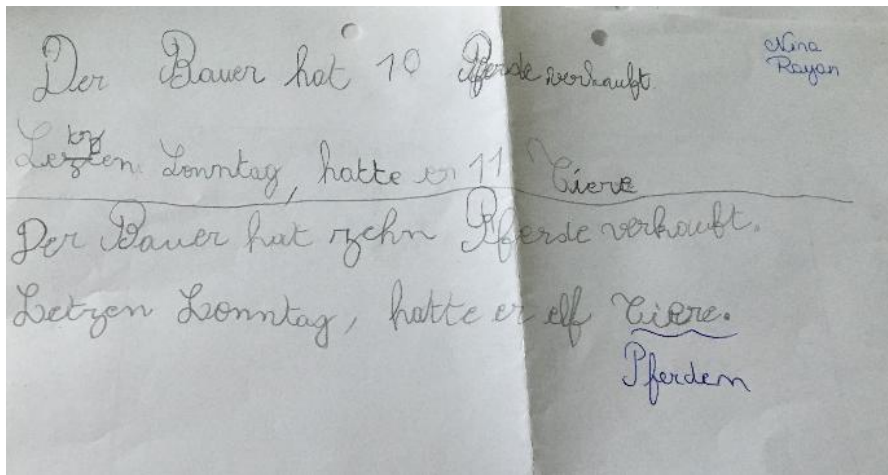 Der Bauer hat 10 Pferde verkauft.
Nina
Rayan
tz
Letzten Sonntag, hatte er 11 Tiere
Der Bauer hat zehn Pferde verkauft.
Letzen Sonntag, hatte er elf Tiere.
Pferden